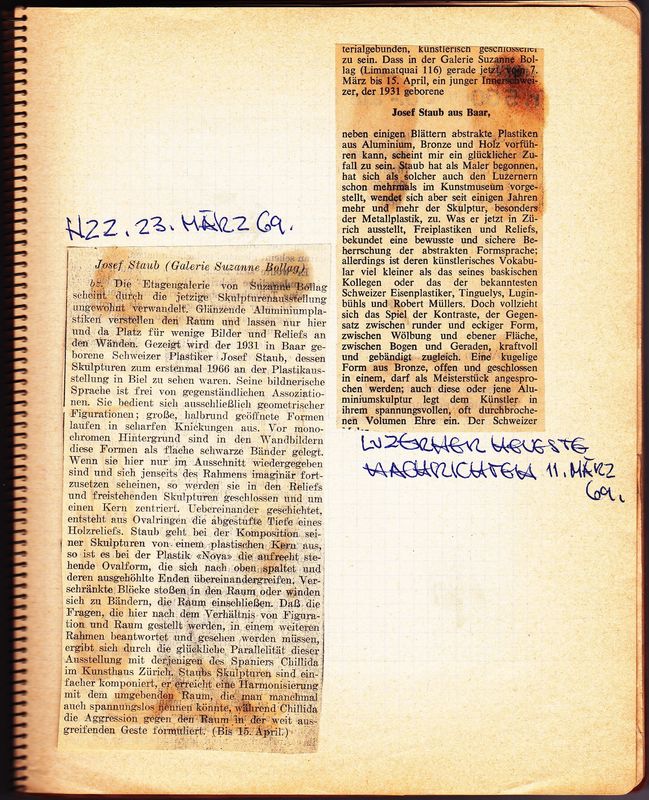 NZZ. 23. MÄRZ 69.
Josef Staub (Galerie Suzanne Bollag)
Die Etagengalerie von Suzanne Bollag
scheint durch die jetzige Skulpturenausstellung
ungewohnt verwandelt. Glänzende Aluminiumpla-
stiken verstellen den Raum und lassen nur hier
und da Platz für wenige Bilder und Reliefs an
den Wänden. Gezeigt wird der 1931 in Baar ge-
borene Schweizer Plastiker Josef Staub, dessen
Skulpturen zum erstenmal 1966 an der Plastikaus-
stellung in Biel zu sehen waren. Seine bildnerische
Sprache ist frei von gegenständlichen Assoziatio-
nen. Sie bedient sich ausschließlich geometrischer
Figurationen; große, halbrund geöffnete Formen
laufen in scharfen Knickungen aus. Vor mono-
chromem Hintergrund sind in den Wandbildern
diese Formen als flache schwarze Bänder gelegt.
Wenn sie hier nur im Ausschnitt wiedergegeben
sind und sich jenseits des Rahmens imaginär fort-
zusetzen scheinen, so werden sie in den Reliefs
und freistehenden Skulpturen geschlossen und um
einen Kern zentriert. Uebereinander geschichtet,
entsteht aus Ovalringen die abgestufte Tiefe eines
Holzreliefs. Staub geht bei der Komposition sei-
ner Skulpturen von einem plastischen Kern aus,
so ist es bei der Plastik «Nova» die aufrecht ste-
hende Ovalform, die sich nach oben spaltet und
deren ausgehöhlte Enden übereinandergreifen. Ver-
schränkte Blöcke stoßen in den Raum oder winden
sich zu Bändern, die Raum einschließen. Daß die
Fragen, die hier nach dem Verhältnis von Figura-
tion und Raum gestellt werden, in einem weiteren
Rahmen beantwortet und gesehen werden müssen,
ergibt sich durch die glückliche Parallelität dieser
Ausstellung mit derjenigen des Spaniers Chillida
im Kunsthaus Zürich. Staubs Skulpturen sind ein-
facher komponiert, er erreicht eine Harmonisierung
mit dem umgebenden Raum, die man manchmal
auch spannungslos nennen könnte, während Chillida
die Aggression gegen den Raum in der weit aus-
greifenden Geste formuliert. (Bis 15. April.)
terialgebunden, künstlerisch geschlossener
zu sein. Dass in der Galerie Suzanne Bol-
lag (Limmatquai 116) gerade jetzt, vom 7.
März bis 15. April, ein junger Innerschwei-
zer, der 1931 geborene
Josef Staub aus Baar,
neben einigen Blättern abstrakte Plastiken
aus Aluminium, Bronze und Holz vorfüh-
ren kann, scheint mir ein glücklicher Zu-
fall zu sein. Staub hat als Maler begonnen,
hat sich als solcher auch den Luzernern
schon mehrmals im Kunstmuseum vorge-
stellt, wendet sich aber seit einigen Jahren
mehr und mehr der Skulptur, besonders
der Metallplastik, zu. Was er jetzt in Zü-
rich ausstellt, Freiplastiken und Reliefs,
bekundet eine bewusste und sichere Be-
herrschung der abstrakten Formsprache;
allerdings ist deren künstlerisches Vokabu-
lar viel kleiner als das seines baskischen
Kollegen oder das der bekanntesten
Schweizer Eisenplastiker, Tinguelys, Lugin-
bühls und Robert Müllers. Doch vollzieht
sich das Spiel der Kontraste, der Gegen-
satz zwischen runder und eckiger Form,
zwischen Wölbung und ebener Fläche,
zwischen Bogen und Geraden, kraftvoll
und gebändigt zugleich. Eine kugelige
Form aus Bronze, offen und geschlossen
in einem, darf als Meisterstück angespro-
chen werden; auch diese oder jene Alu-
miniumskulptur legt dem Künstler in
ihrem spannungsvollen, oft durchbroche-
nen Volumen Ehre ein. Der Schweizer
LUZERNER NEUESTE
NACHRICHTEN 11. MÄRZ
69.